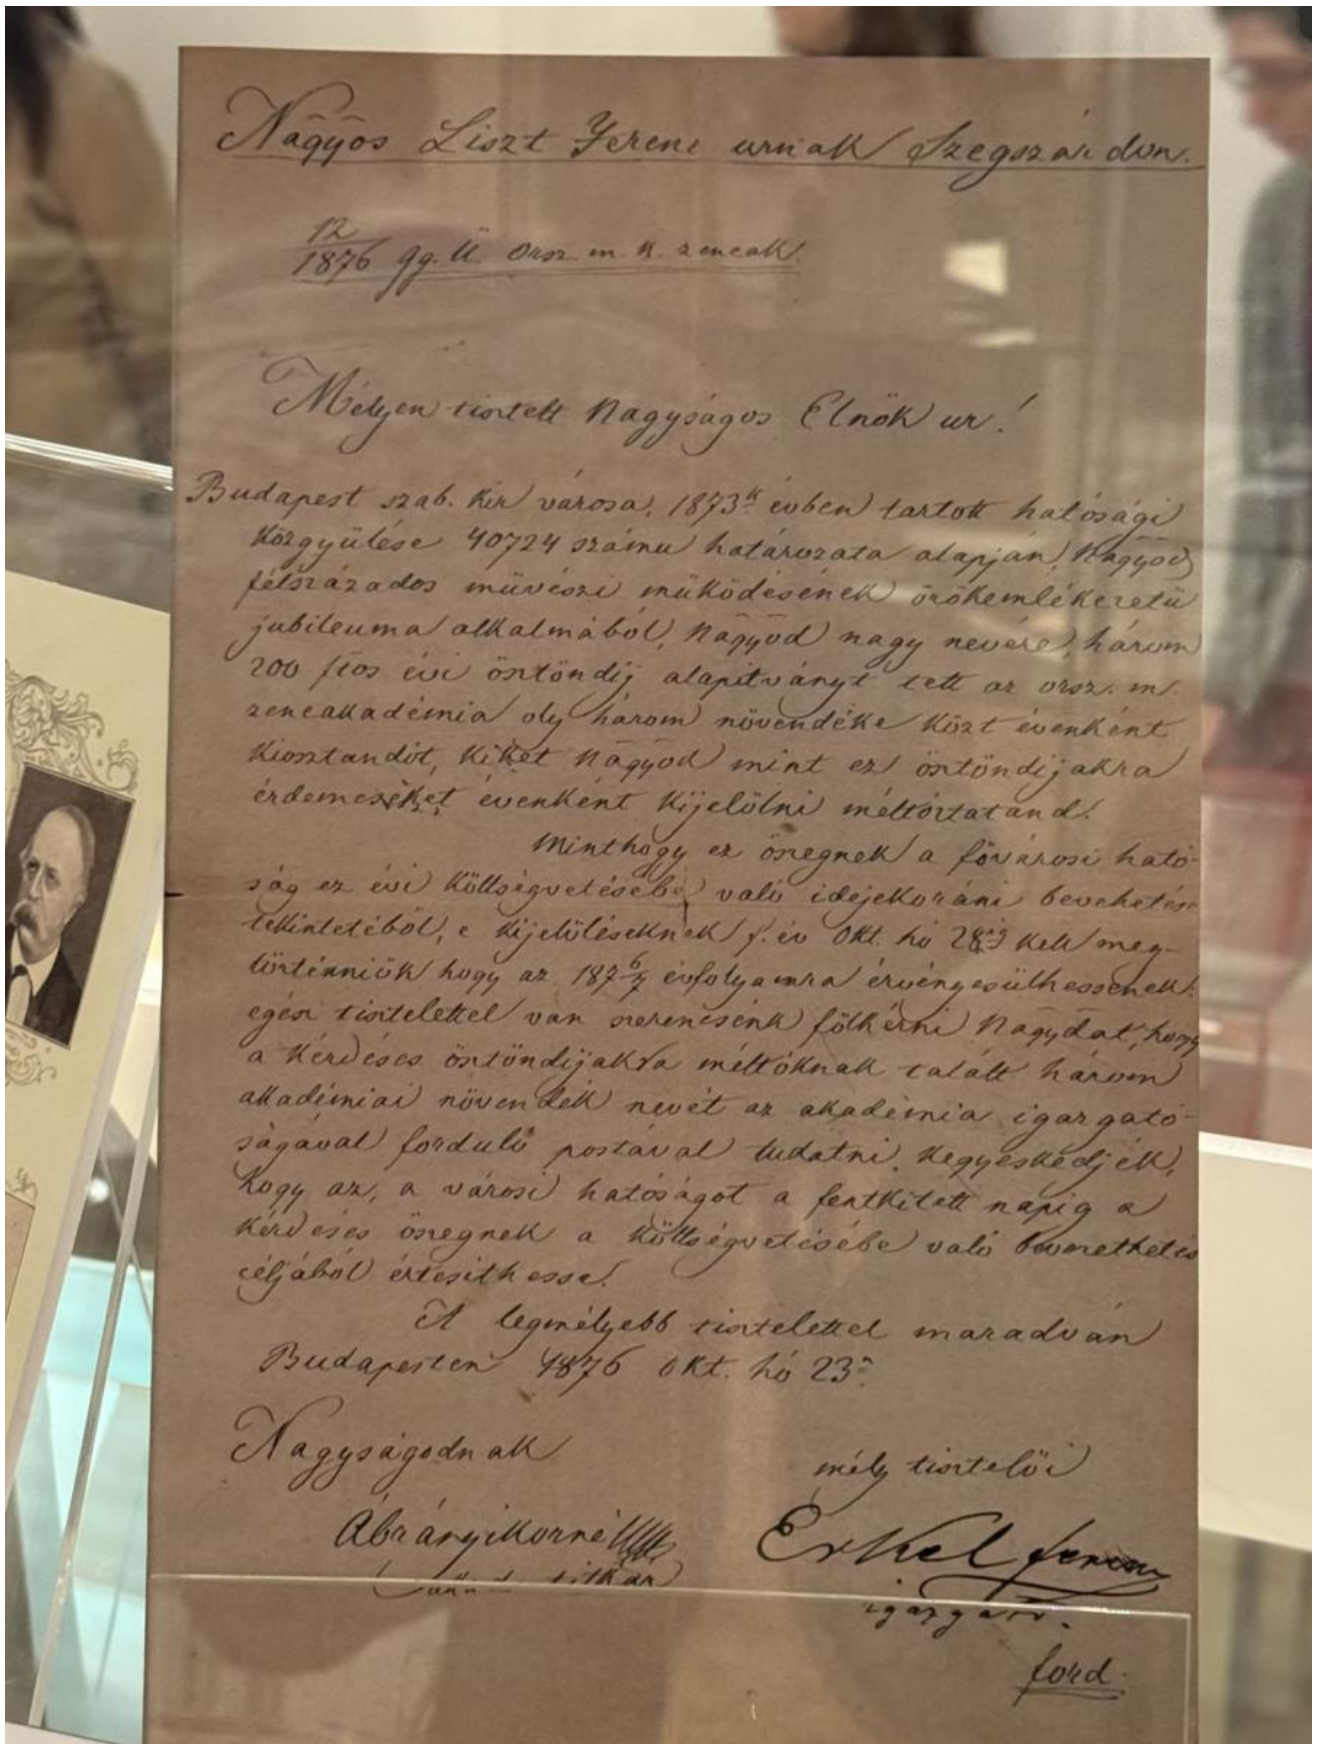 Nāgȳos Liszt Ferenc urnak Szegszárdon.
12
1876 gg. Ü. Orsz. m. k. zeneak.
Mélyen tisztelt Nagyságos Elnök ur!
Budapest szab. kir városa, 1873ik évben tartott hatósági
közgyülése 40724 számu határozata alapján, Nāgȳod
félszázados müvészi müködésének örökemlékezetü
jubileuma alkalmából, Nāgȳod nagy nevére, három
200 ftos évi ösztöndij alapitványt tett az orsz. m.
zeneakadémia oly három növendéke közt évenként
kiosztandót, kiket Nāgȳod mint ez ösztöndijakra
érdemeseket évenként kijelölni méltóztatand.
Minthogy ez öszegnek a fővárosi ható-
ság ez évi költségvetésébe való idejekoráni bevehetése
tekintetéből, e kijelöléseknek f. év Okt. hó 28ig kell meg-
történniök hogy az 1876/7 évfolyamra érvényesülhessenek:
egész tisztelettel van szerencsénk fölkérni Nāgȳdat, hogy
a kérdéses ösztöndijakra méltóknak talált három
akadémiai növendék nevét az akadémia igazgató-
ságával forduló postával tudatni kegyeskedjék,
hogy az, a városi hatóságot a fentkitett napig a
kérdéses öszegnek a költségvetésébe való bevezethetés
céljából értesithesse.
A legmélyebb tisztelettel maradván
Budapesten 1876 Okt. hó 23n.
Nagyságodnak
mély tisztelői
Ábrányi Kornél
Erkel Ferenc
titkár
igazgató.
ford.